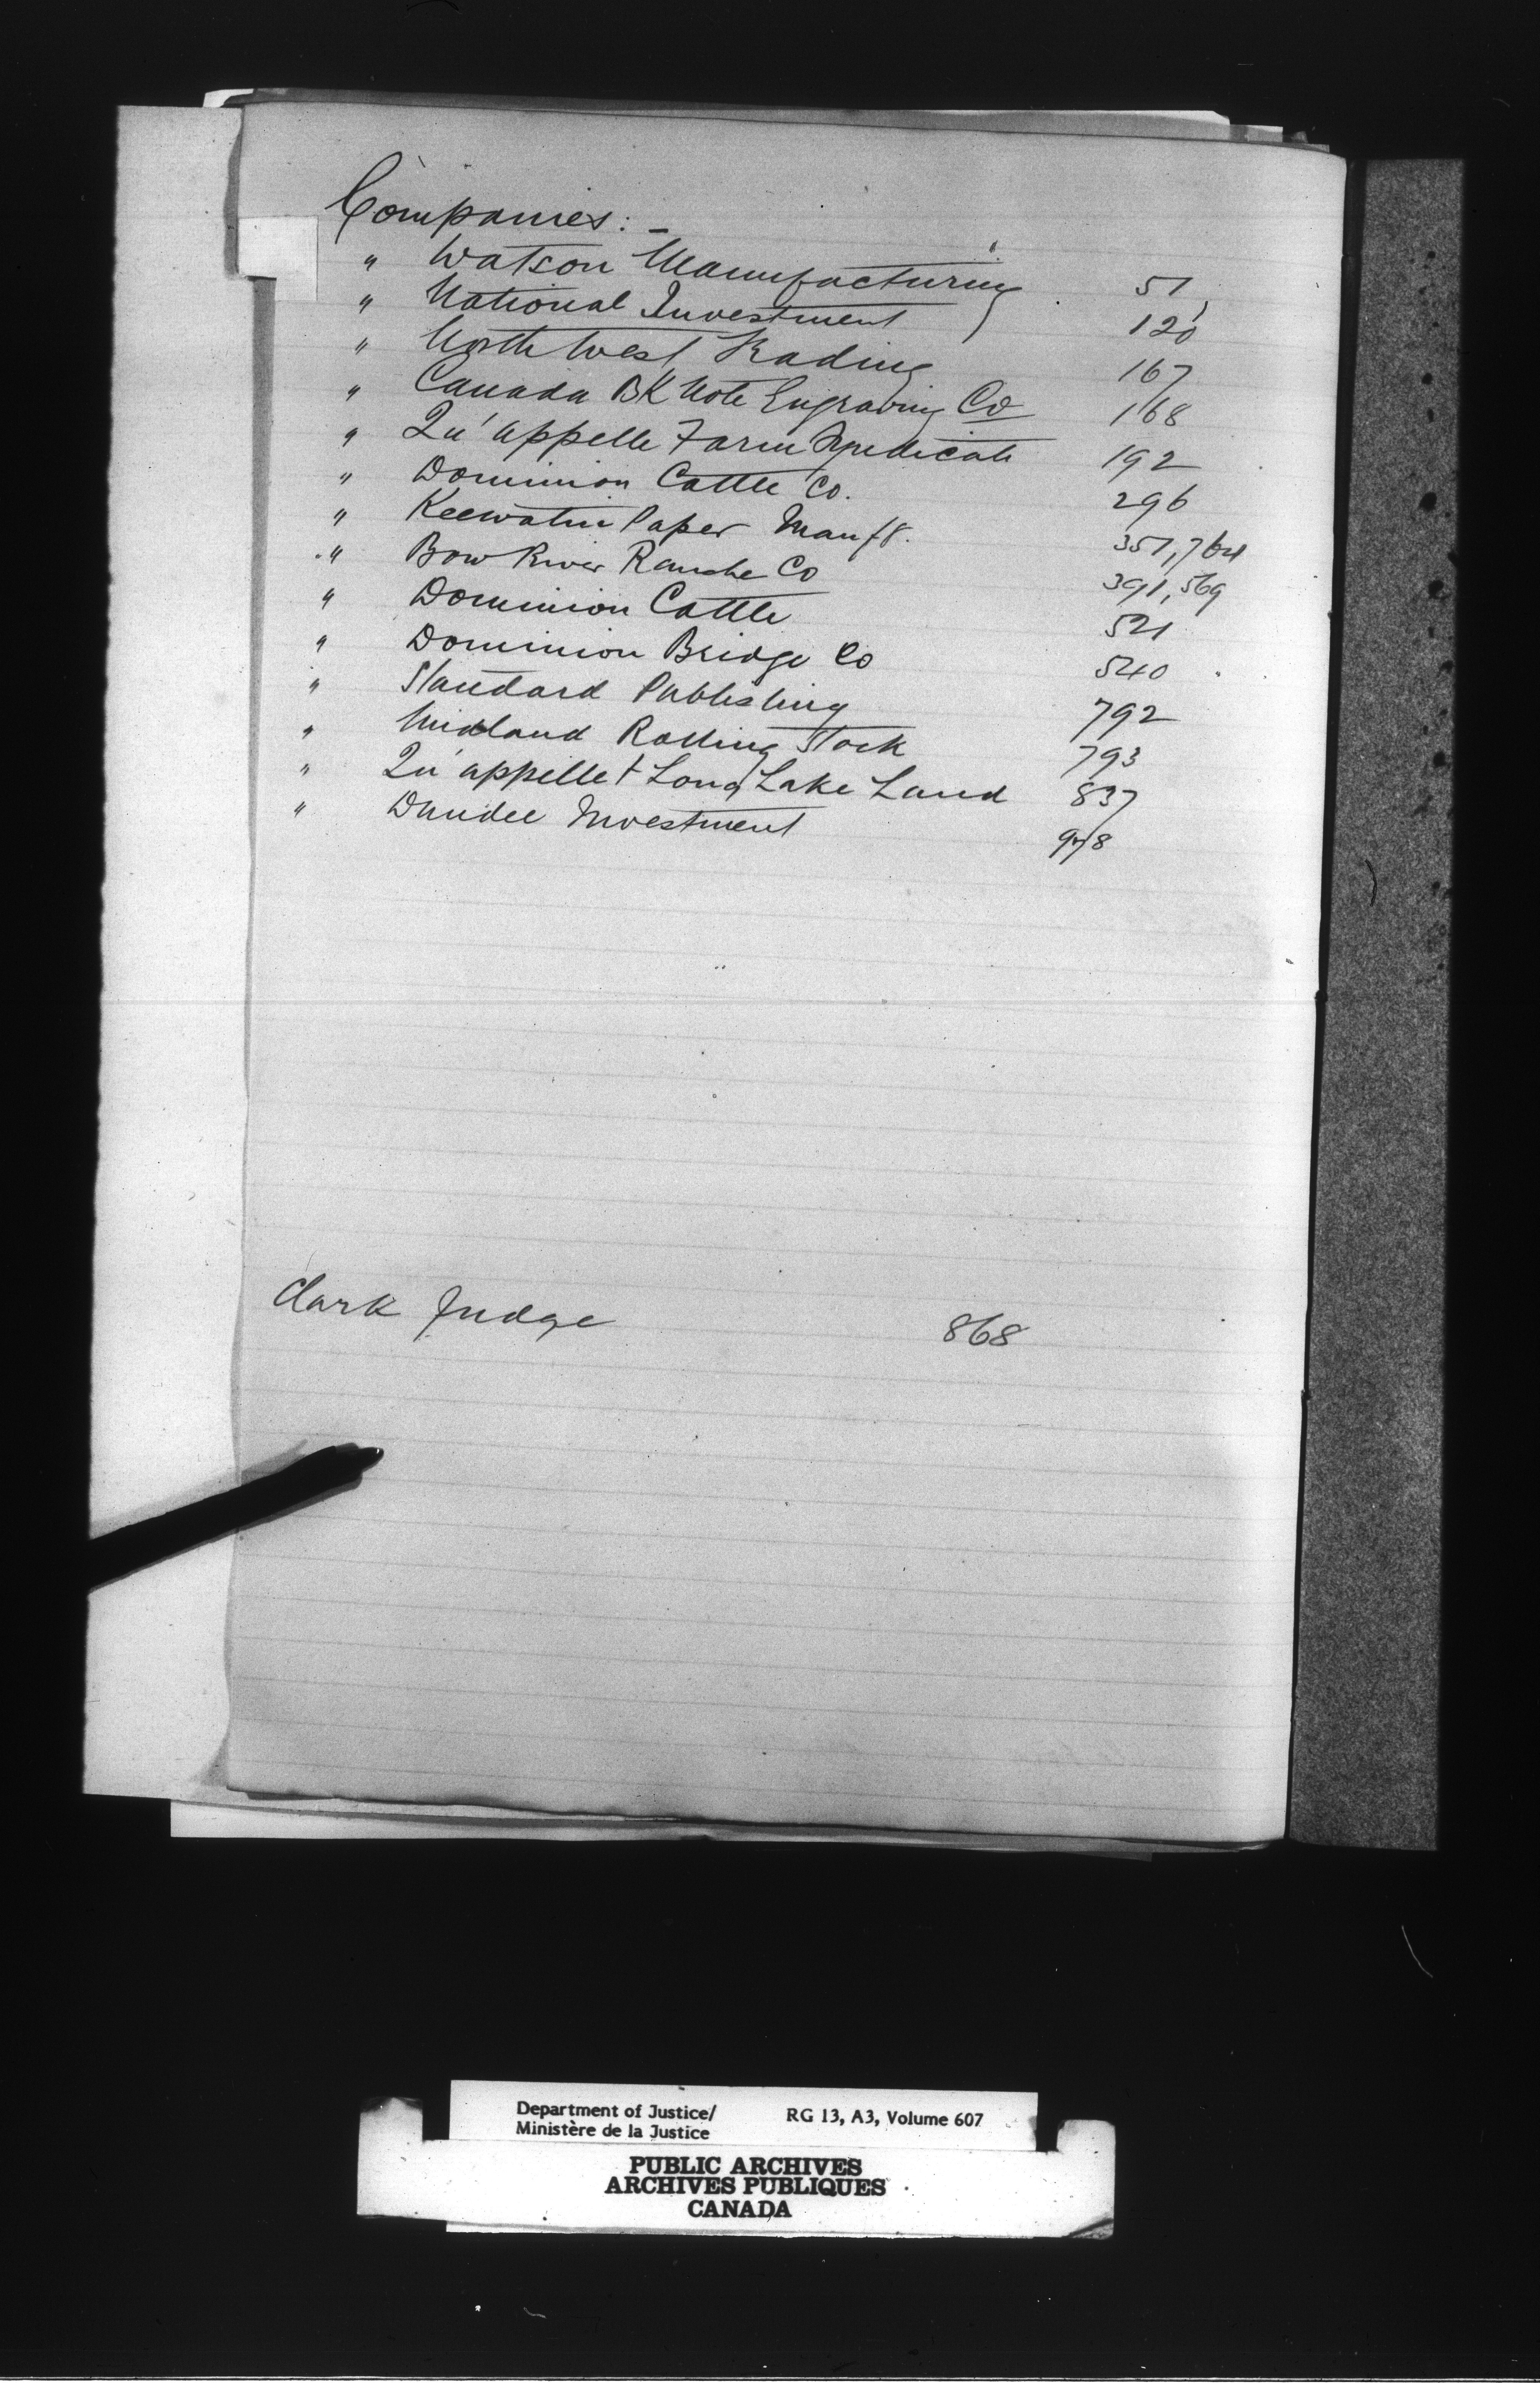 Companies:-
" Watson Manufacturing 51
" National Investment 120
" North West Trading 167
" Canada BK Note Engraving Co 168
" Qu'appelle Farm Syndicate 192
" Dominion Cattle Co. 296
" Keewatin Paper Manfg. 351, 764
" Bow River Ranche Co 391, 569
" Dominion Cattle 521
" Dominion Bridge Co 540
" Standard Publishing 792
" Midland Rolling Stock 793
" Qu'appelle + Long Lake Land 837
" Dundee Investment 978
Clark Judge 868
Department of Justice/ RG 13, A3, Volume 607
Ministère de la Justice
PUBLIC ARCHIVES
ARCHIVES PUBLIQUES
CANADA